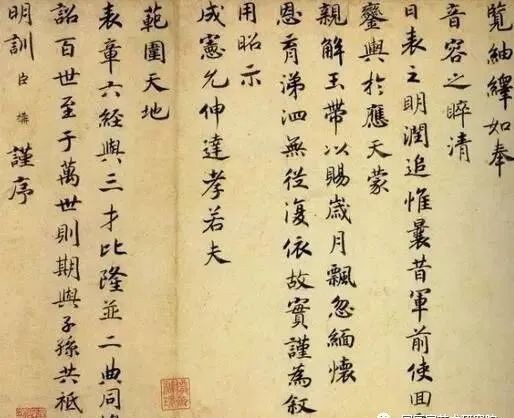 覧紬繹如奉
音容之晬清
日表之明潤追惟曩昔軍前使回
鑾輿於應天蒙
親解玉帶以賜歳月飄忽緬懷
恩育涕泗無從復依故實謹為叙
用昭示
成憲允伸達孝若夫
範圍天地
表章六經與三才比隆並二典同
詔百世至于萬世則期與子孫共祗
明訓臣構謹序